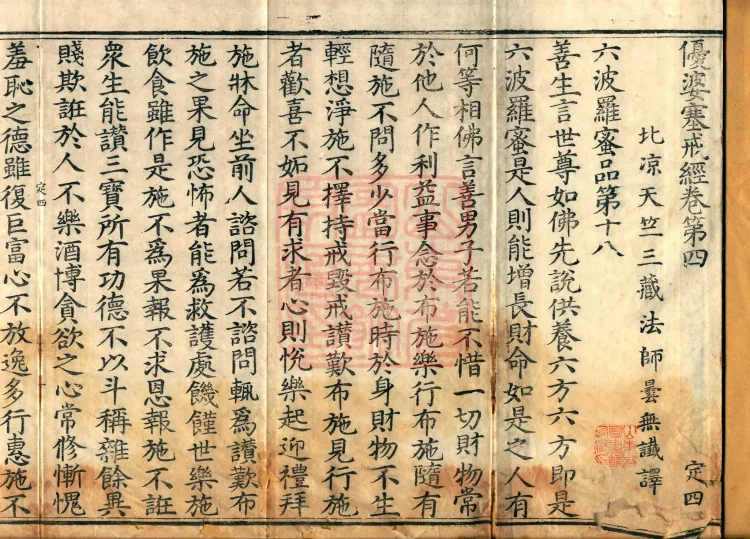 優婆塞戒經卷第四
定四
北凉天竺三藏法師曇無讖譯
六波羅蜜品第十八
善生言世尊如佛先說供養六方六方即是
六波羅蜜是人則能增長財命如是之人有
何等相佛言善男子若能不惜一切財物常
於他人作利益事念於布施樂行布施隨有
隨施不問多少當行布施時於身財物不生
輕想淨施不擇持戒毀戒讃歎布施見行施
者歡喜不妬見有求者心則悅樂起迎禮拜
施牀命坐前人諮問若不諮問輒爲讃歎布
施之果見恐怖者能爲救護處饑饉世樂施
飲食雖作是施不爲果報不求恩報施不誑
衆生能讃三寶所有功德不以斗稱雜餘異
賤欺誑於人不樂酒博貪欲之心常修慚愧
定四
羞恥之德雖復巨富心不放逸多行惠施不